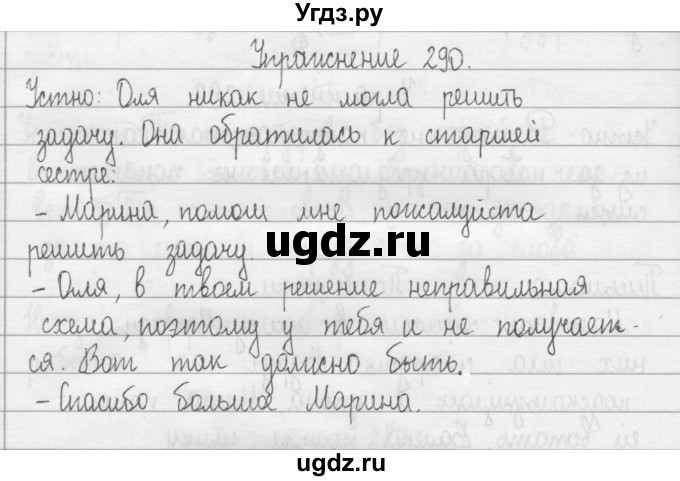 Угдз.ру
Упражнение 290.
Устно: Оля никак не могла решить
задачу. Она обратилась к старшей
сестре:
- Марина, помоги мне пожалуйста
ugdz.ru
решить задачу.
- Оля, в твоем решение неправильная
схема, поэтому у тебя и не получает-
ся. Вот так должно быть.
- Спасибо больша Марина.
ugdz.ru